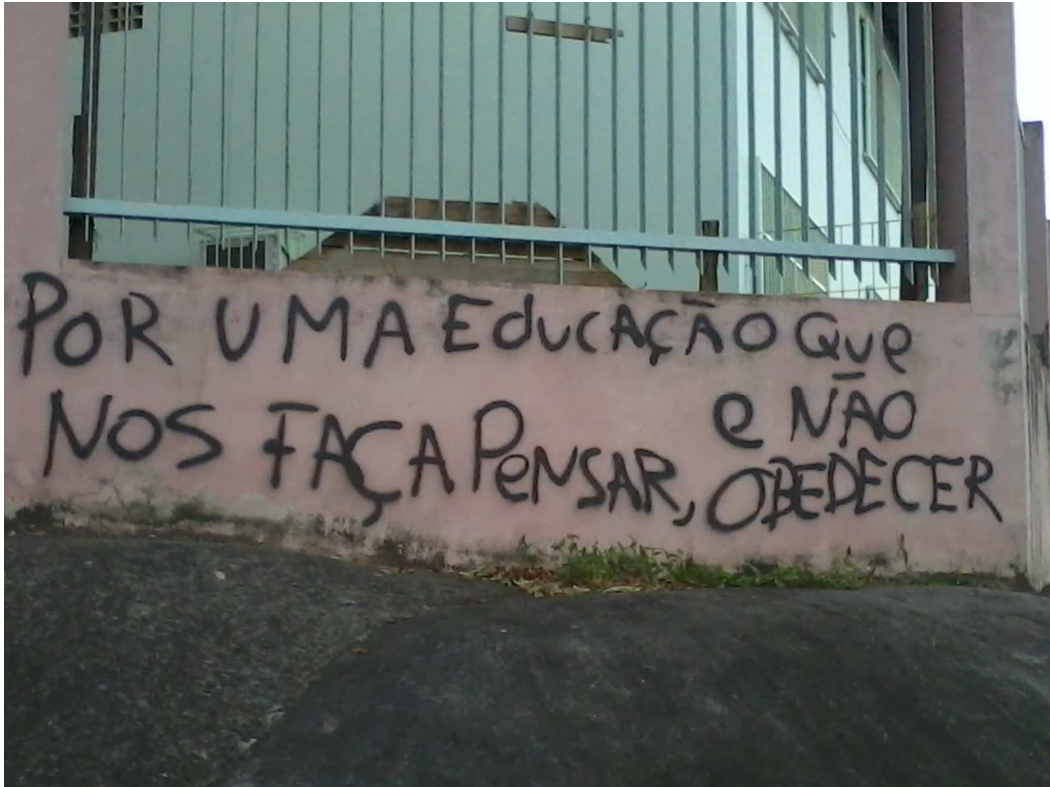 POR UMA EDUCAÇÃO QUe
NOS FAÇA PeNSAR, e NÃO
OBEDECER